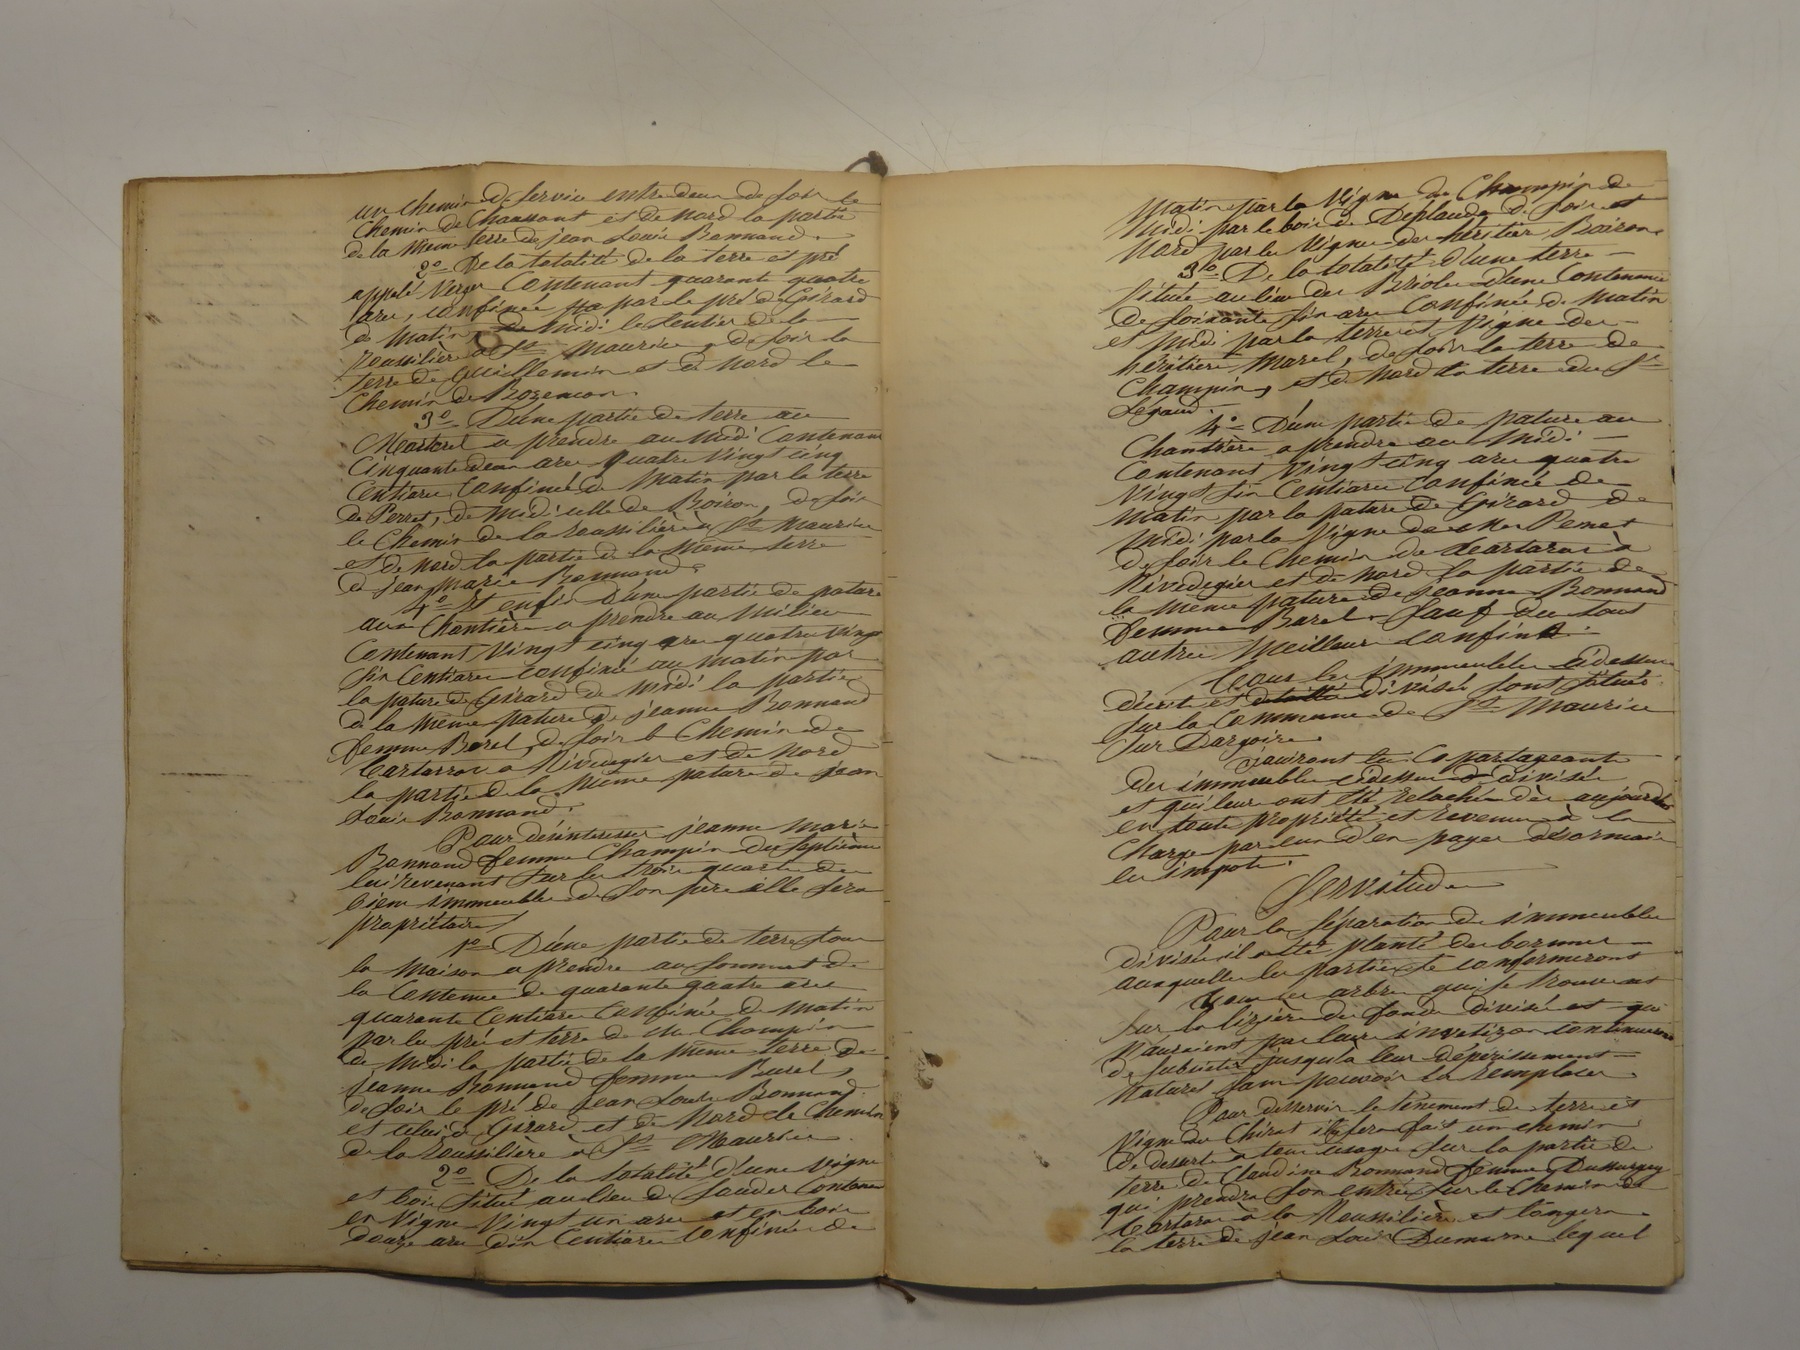 un chemin de service entre deux de soir le
Chemin de Chaussont et de nord la partie
de la meme terre de jean Louis Bonnand.
2o De la totalité de la terre et pré
appelé Verger Contenant quarante quatre
ares, confinée par le pré de Girard
de matin, de midi le Sentier de la
roussilière a St Maurice, de soir la
terre de Guillemin et de nord le
Chemin de Bozencon.
3o D'une partie de terre au
a prendre au midi Contenant
Cinquante deux ares quatre Vingt cinq
Centiares Confinée de matin par la terre
de Perret, de midi celle de Boiron, de soir
le Chemin de la roussilière à St Maurice
et de nord la partie de la même terre
de jean marie Bonnand.
4o Et enfin d'une partie de pature
aux Chantière a prendre au milieu
Contenant Vingt cinq ares quatre Vingt
six Centiares confiné au matin par
la pature de Girard de midi la partie
de la même pature de jeanne Bonnand
femme Borel, de soir le Chemin de
Cartarrau a Rivedegier et de nord
la partie de la même pature de jean
Louis Bonnand.
Pour désintéresser jeanne marie
Bonnand femme Champin du Septième
lui revenant sur les trois quarts des
biens immeubles de son père elle sera
propriétaire
1o D'une partie de terre sous
la maison a prendre au sommet de
la Contenue de quarante quatre ares
quarante Centiares Confinée de matin
par les pré et terre de Champin
de midi la partie de la même terre de
jeanne Bonnand femme Burel,
de soir le pré de jean Louis Bonnand
et celui de Girard et de Nord le Chemin
de la roussilière à St Maurice.
2o De la totalité d'une Vigne
et bois Situé au lieu de Contenant
en Vigne Vingt un ares et en bois
douze ares dix Centiares Confinée de
Matin par la Vigne de Champin de
Midi par le bois de Deplaude de soir et
Nord par les Vignes des héritiers Boiron.
3o De la totalité d'une terre
située au lieu des Brioles d'une Contenance
de soixante six ares Confinée de matin
et midi par la terre et Vigne des
héritiers Morel, de soir la terre de
Champin, et de Nord la terre du Sr
Légaud.
4o D'une partie de pature au
Chantière a prendre au Midi
Contenant Vingt cinq ares quatre
Vingt six Centiares Confinée de
matin par la pature de Girard de
midi par la Vigne de Pernet
de soir le Chemin de Leartarau à
Rivedegier et de nord la partie de
la même pature de jeanne Bonnand
femme Borel. Sauf de tout
autres Meilleurs confins.
Tous les immeubles cidessus
décrits et divisés sont Situés
sur la Commune de St Maurice
Sur Dargoire.
Jouiront les Copartageants
des immeubles cidessus divisés
et qui leur ont été relachés dès aujourdhui
en toute propriété et revenus à la
Charge par eux d'en payer désormais
les impots.
Servitudes
Pour la Séparation des immeubles
divisés il a été planté des bornes
auxquelles les parties se conformeront
Tous les arbres qui se trouvent
sur la lizière des fonds divisés et qui
n'auraient pas leurs continueront
de Subsister jusqu'à leur dépérissement
Naturel sans pouvoir les remplacer.
Pour desservir le tènement de terre et
Vigne du Chirat il sera fait un chemin
de desserte à leur usage sur la partie de
terre de Claudine Bonnand femme
qui prendra son entrée sur le Chemin de
Cartarau à la Roussilière et longera
la terre de jean Louis lequel